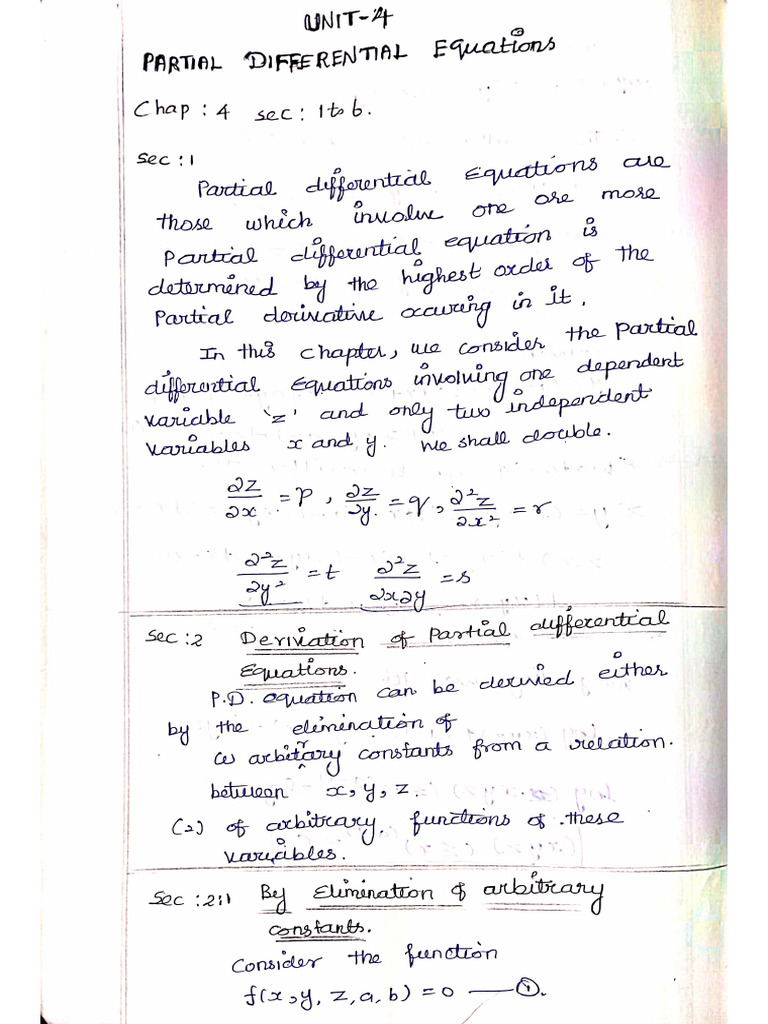 UNIT-4
PARTIAL DIFFERENTIAL Equations
Chap : 4 sec : 1 to 6.
sec : 1
Partial differential Equations are
those which involve one ore more
Partial differential equation is
determined by the highest order of the
Partial derivative occuring in it.
In this chapter, we consider the Partial
differential Equations involving one dependent
variable 'z' and only two independent
variables x and y. we shall double.
∂z/∂x = p, ∂z/∂y = q, ∂²z/∂x² = r
∂²z/∂y² = t ∂²z/∂x∂y = s
Sec : 2 Derivation of Partial differential
Equations.
P.D. equation can be derived either
by the elimination of
(1) arbitrary constants from a relation.
between x, y, z.
(2) of arbitrary, functions of these
variables.
Sec : 2:1 By Elimination of arbitrary
constants.
Consider the function
f(x, y, z, a, b) = 0 — ①.